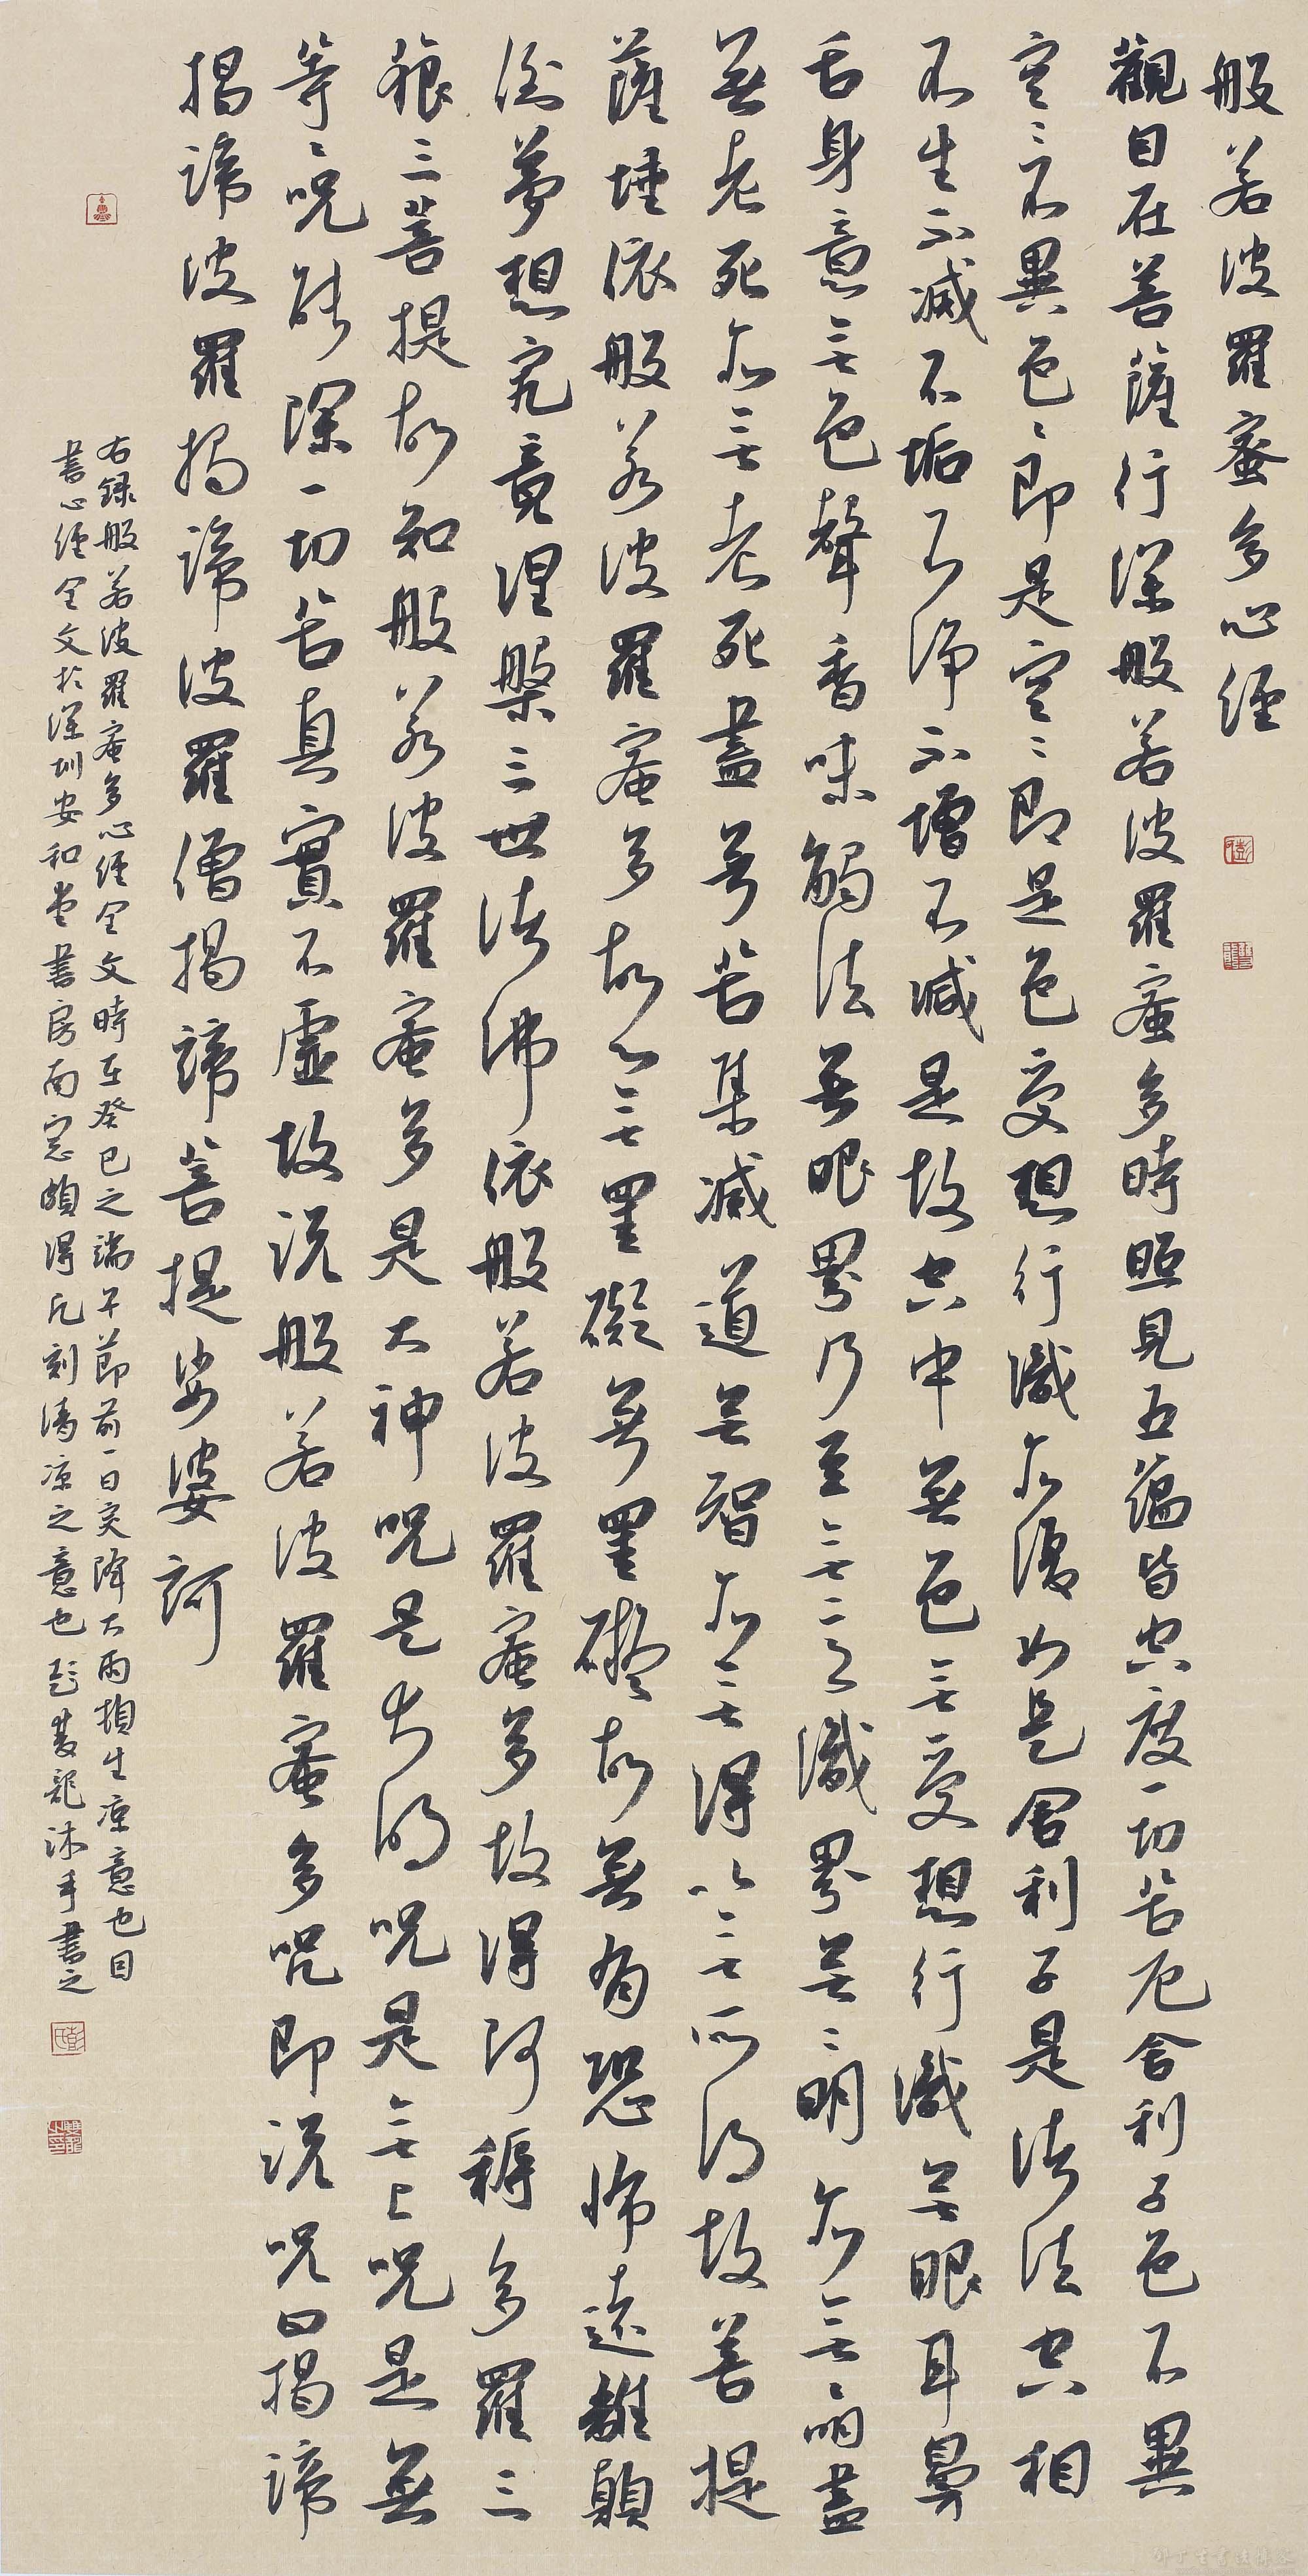 般若波羅蜜多心經
觀自在菩薩行深般若波羅蜜多時照見五蘊皆空度一切苦厄舍利子色不異
空〻不異色〻即是空〻即是色受想行識亦復如是舍利子是諸法空相
不生不滅不垢不淨不增不減是故空中無色無受想行識無眼耳鼻
舌身意無色聲香味觸法無眼界乃至無意識界無〻明亦無〻明盡
無老死亦無老死盡無苦集滅道無智亦無得以無所得故菩提
薩埵依般若波羅蜜多故心無罣礙無罣礙故無有恐怖遠離顛
倒夢想究竟涅槃三世諸佛依般若波羅蜜多故得阿耨多羅三
藐三菩提故知般若波羅蜜多是大神呪是大明呪是無上呪是無
等〻呪能除一切苦真實不虛故說般若波羅蜜多呪即說呪曰揭諦
揭諦波羅揭諦波羅僧揭諦菩提娑婆訶
右録般若波羅蜜多心經全文時在癸巳之端午節前一日突降大雨頓生涼意也自
書心經全文於深圳安和堂書房南窓頗得片刻清涼之意也彭雙龍沐手書之